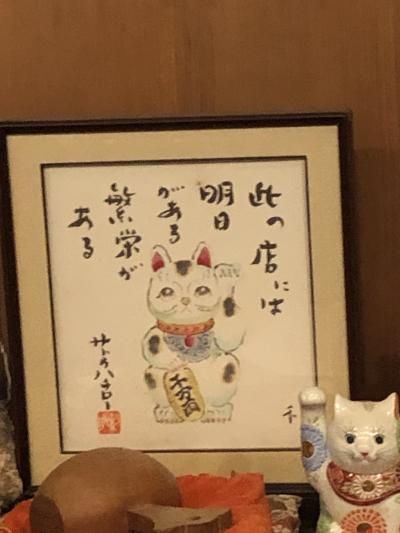 此の店には
明日
がある
繁栄が
ある
サトウハチロー
千万両
千